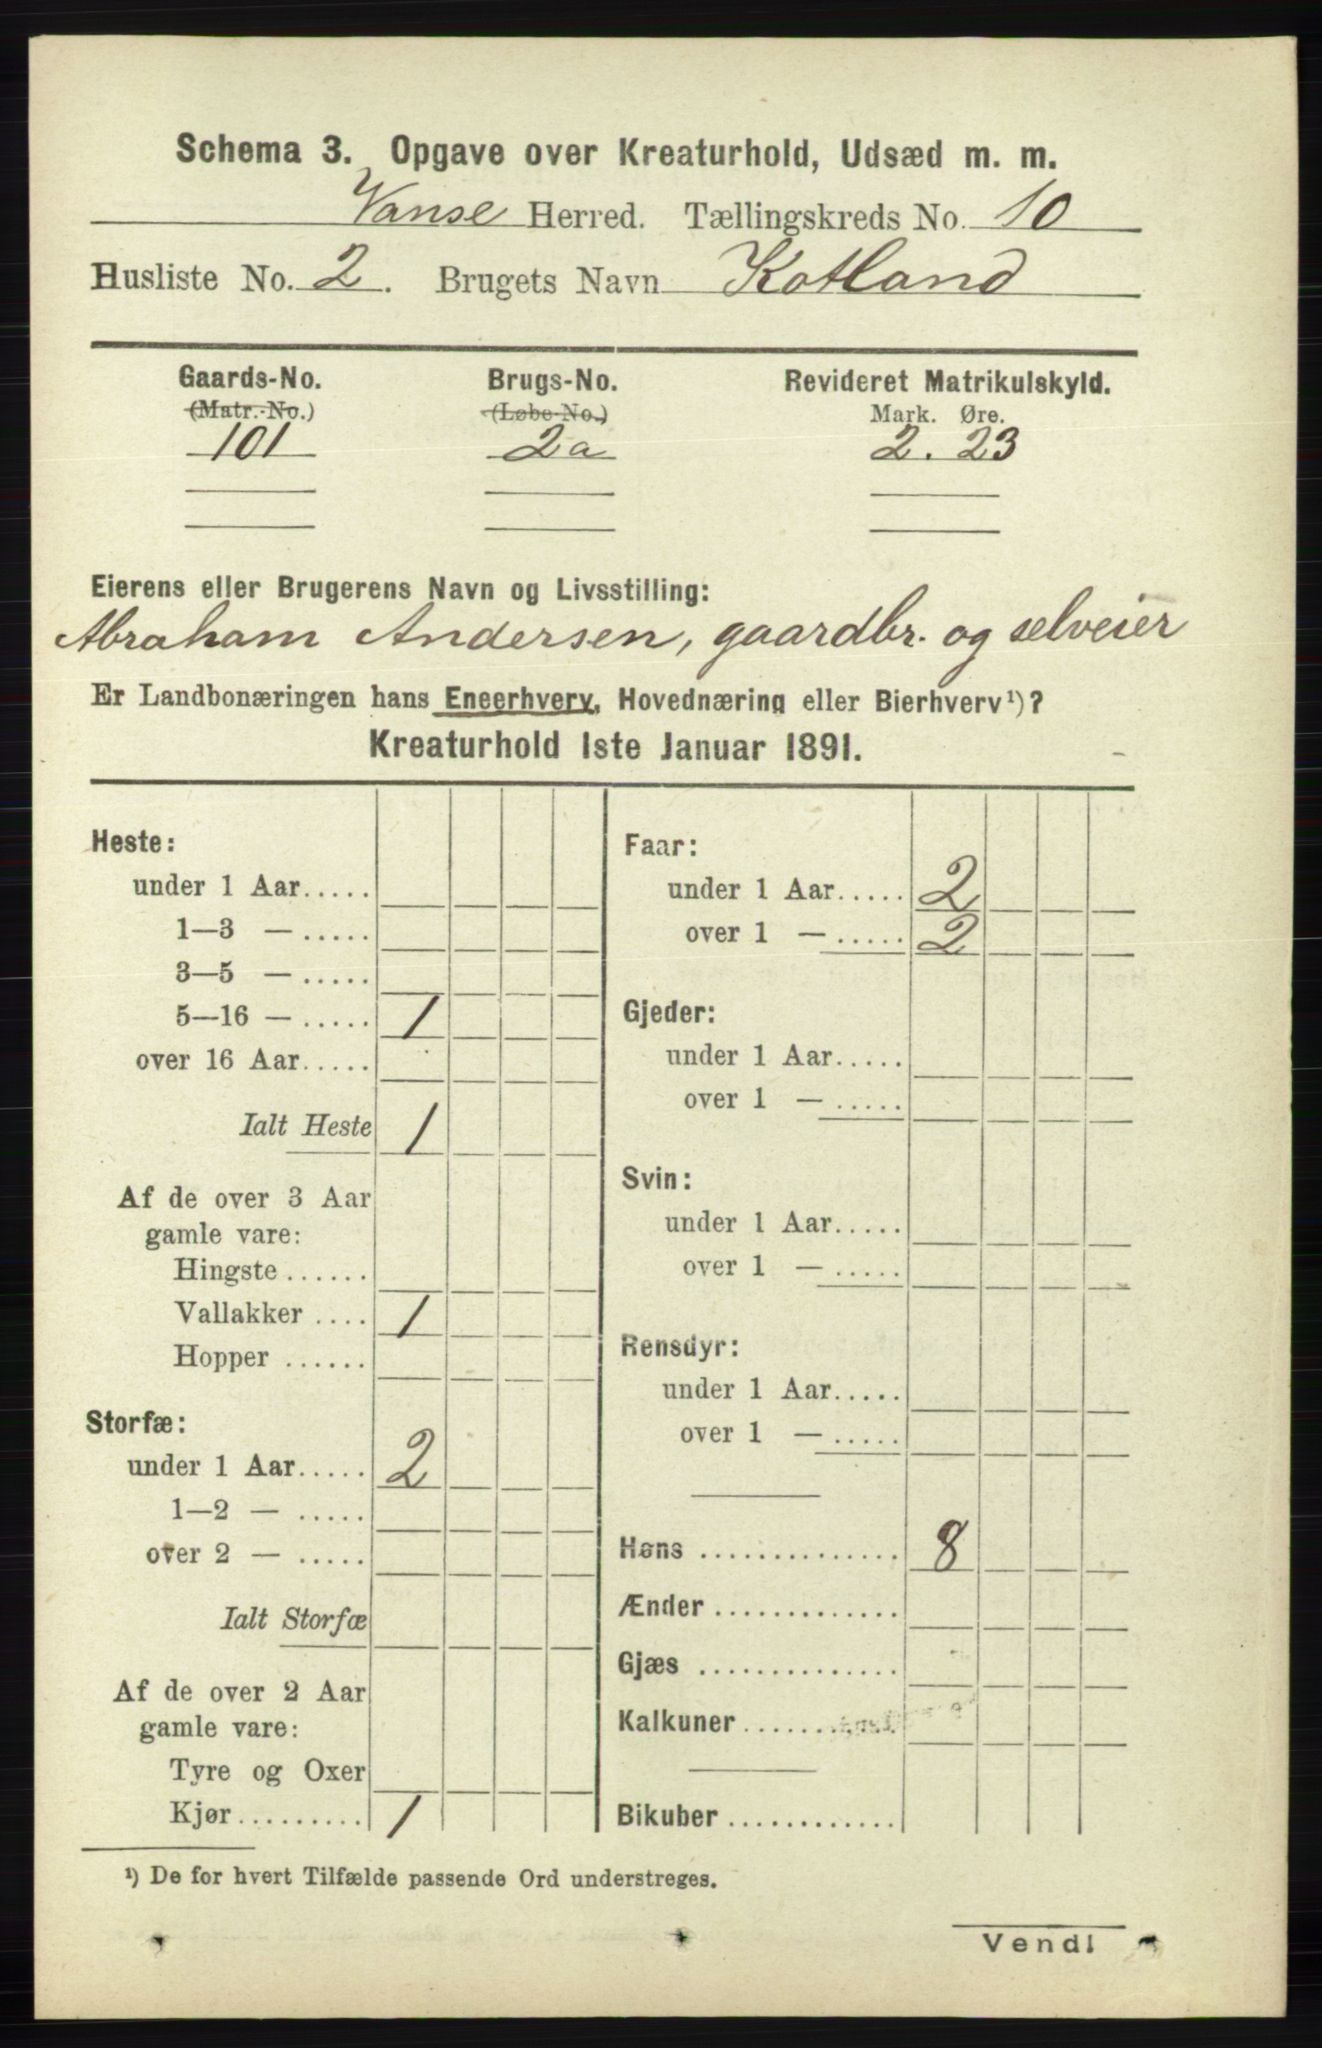 Schema 3. Opgave over Kreaturhold, Udsæd m. m.
Vanse Herred. Tællingskreds No. 10
Husliste No. 2. Brugets Navn Kotland
Gaards-No. Brugs-No. Revideret Matrikulskyld.
(Matr.-No.) (Løbe-No.) Mark. Øre.
101 2a 2. 23
Eierens eller Brugerens Navn og Livsstilling:
Abraham Andersen, gaardbr. og selveier
Er Landbonæringen hans Eneerhverv, Hovednæring eller Bierhverv¹)?
Kreaturhold 1ste Januar 1891.
Heste:
under 1 Aar.....
1—3 — .....
3—5 — .....
5—16 — ..... 1
over 16 Aar.....
Ialt Heste 1
Af de over 3 Aar
gamle vare:
Hingste ......
Vallakker .... 1
Hopper ......
Storfæ:
under 1 Aar..... 2
1—2 — .....
over 2 — .....
Ialt Storfæ
Af de over 2 Aar
gamle vare:
Tyre og Oxer
Kjør......... 1
Faar:
under 1 Aar..... 2
over 1 — ..... 2
Gjeder:
under 1 Aar.....
over 1 — .....
Svin:
under 1 Aar.....
over 1 — .....
Rensdyr:
under 1 Aar.....
over 1 — .....
Høns .............. 8
Ænder .............
Gjæs ..............
Kalkuner
Bikuber ............
¹) De for hvert Tilfælde passende Ord understreges.
Vend!